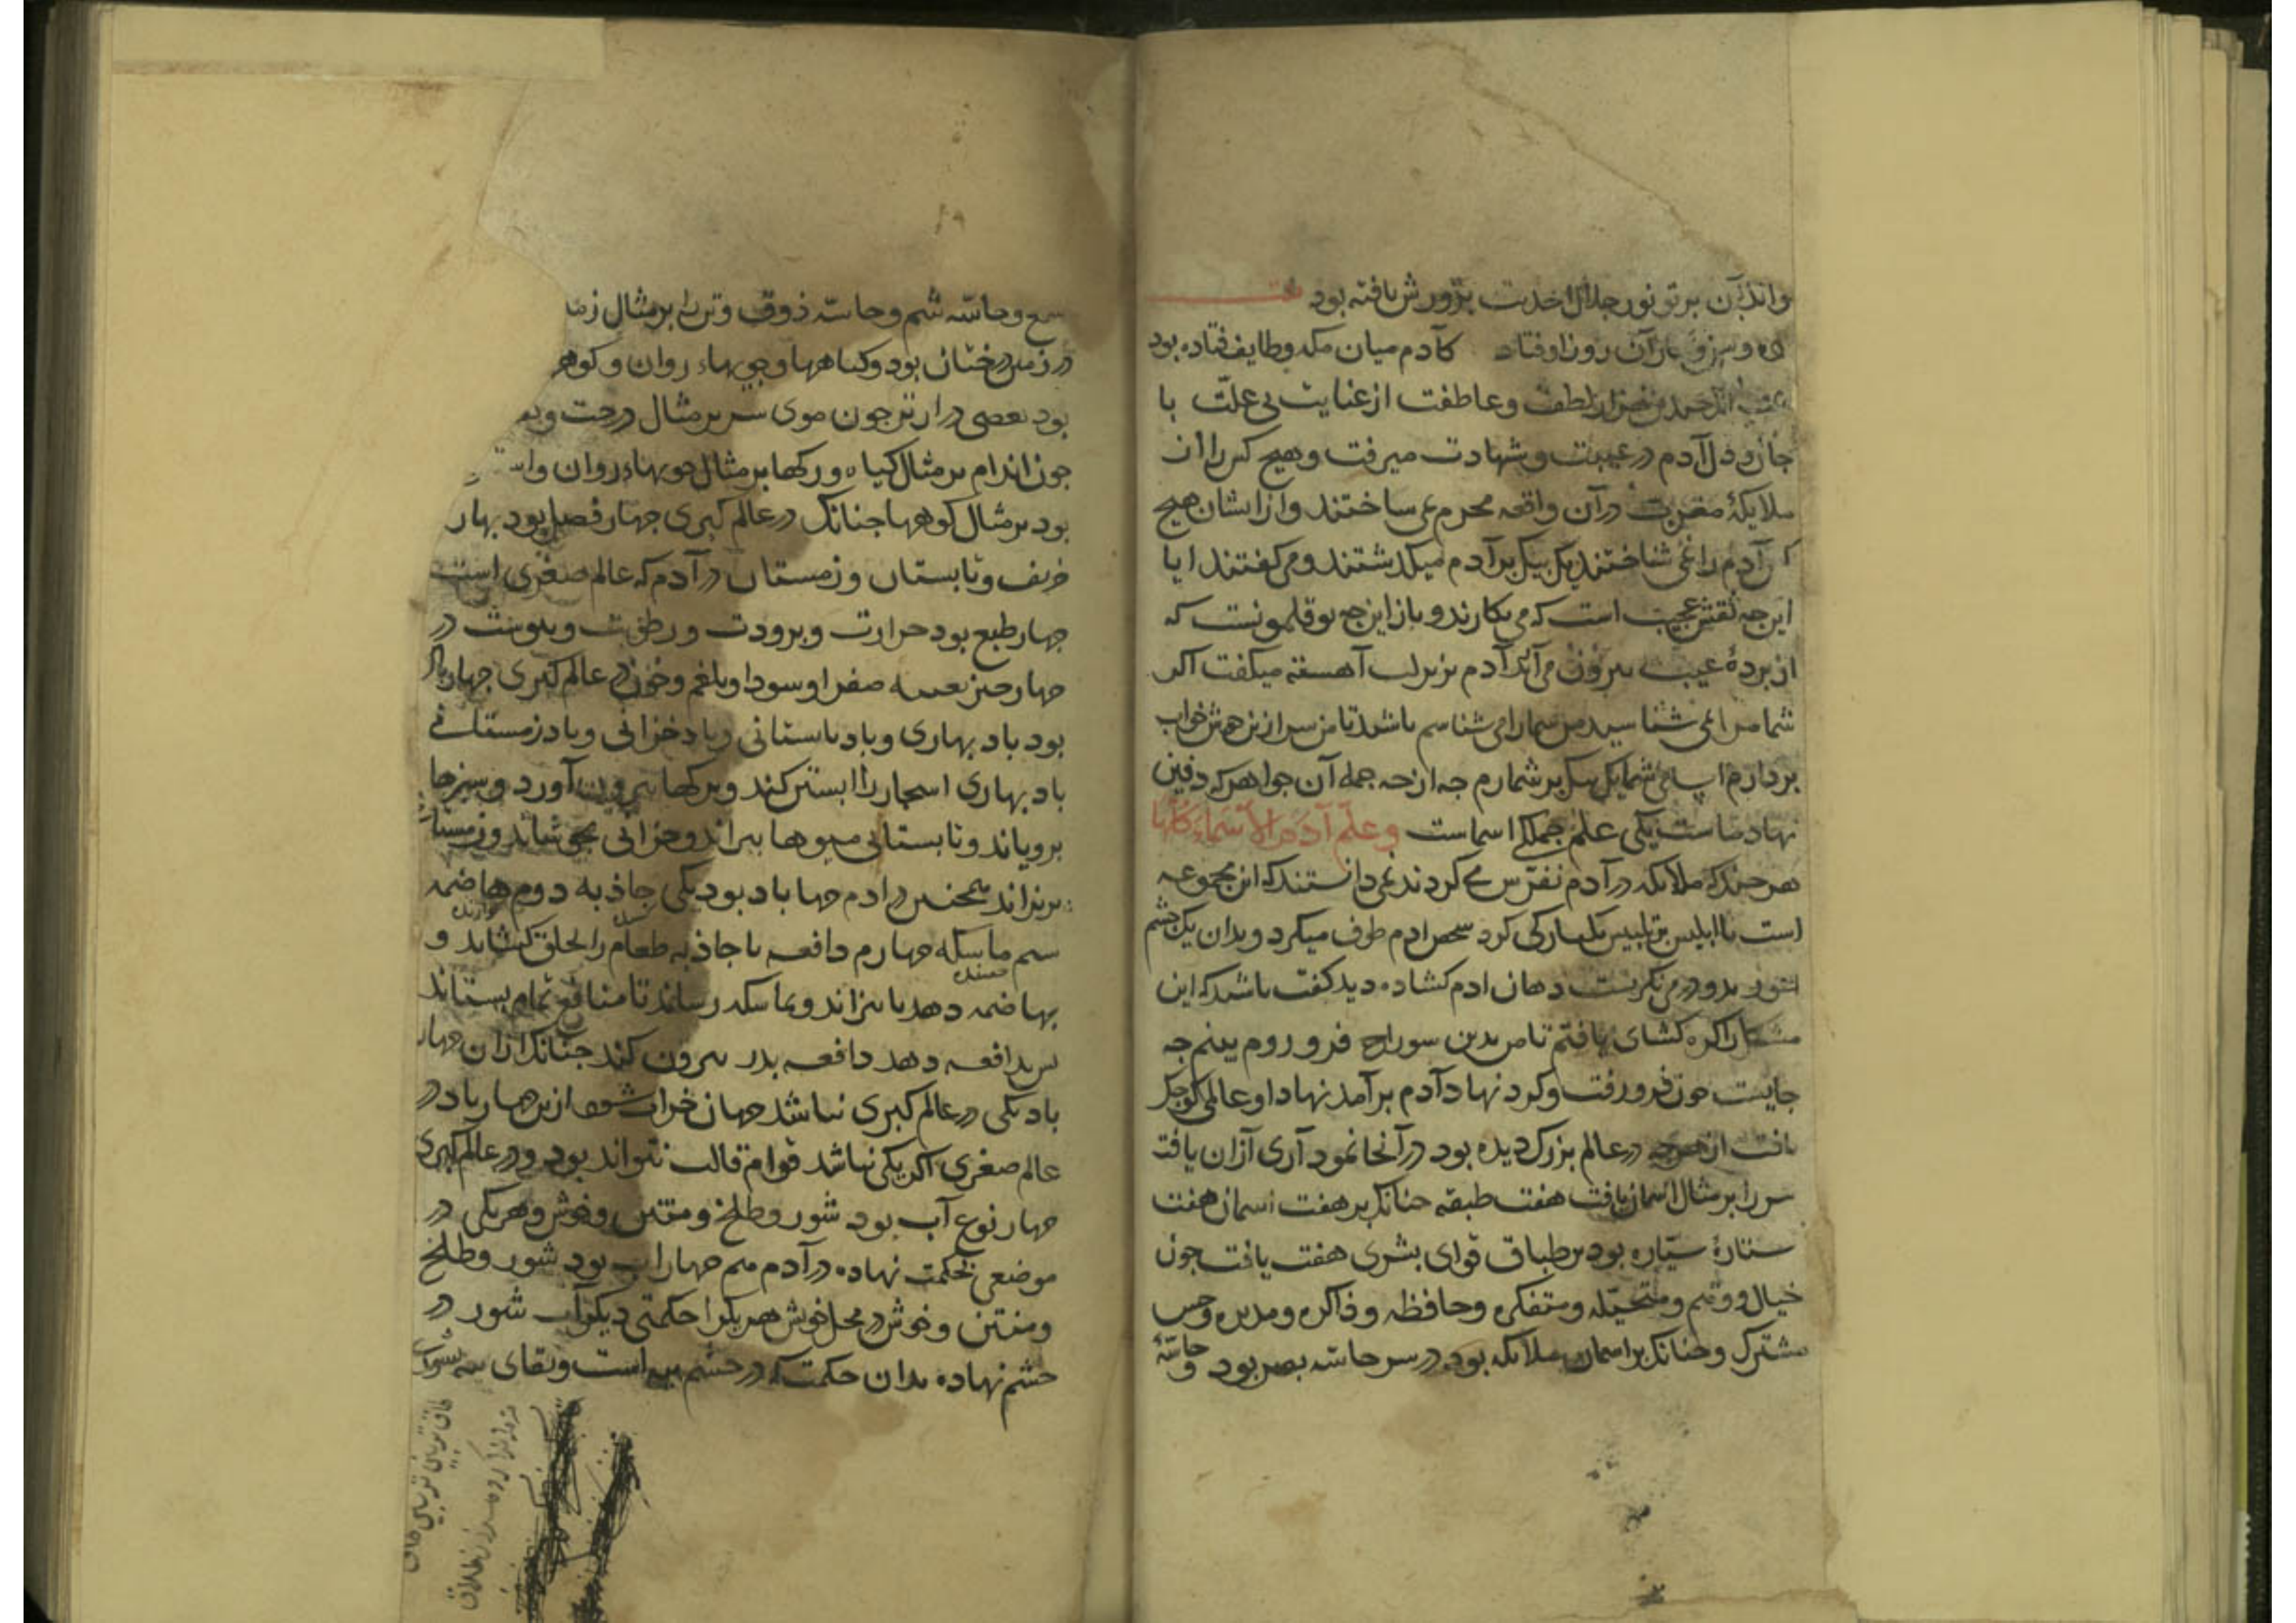 وانداز آن پرتو نور جلال احدیت پرورش یافته بود
آن روز اوفتاد کآدم میان مکه و طایف فتاده بود
لطف و عاطفت از عنایت بی علت با
جان و دل آدم در غیبت و شهادت میرفت و هیچ کس را از
ملایکهٔ مقرب در آن واقعه محرم نمی ساختند و از ایشان هیچ
آدم را نمی شناختند یک بیک بر آدم میگذشتند و می گفتند ایا
این چه نقش عجیب است که می نگارند و باز این چه بوقلمونست که
از پردهٔ غیب بیرون می آید آدم بزیر لب آهسته میگفت اگر
شما مرا نمی شناسید من شما را می شناسم باشید تا من سر ازین خوش خواب
بردارم اسامی شما یک بیک برشمارم چه از جمله آن جواهر که دفین
نهاد ماست یکی علم جملگی اسماست وعلّم آدم الأسماء كلّها
هر چند که ملایکه در آدم تفرس می کردند نمی دانستند که این مجموعه
است تا ابلیس پرتلبیس یکباری گرد شخص ادم طوف میکرد و بدان یک چشم
اعور بدو در می نگریست دهان ادم گشاده دید گفت باشید که این
مشکل را گره گشای یافتم تا من بدین سوراخ فرو روم ببینم چه
جایست چون فرو رفت و گرد نهاد آدم برآمد نهاد او عالمی کوچک
یافت از هرچه در عالم بزرگ دیده بود در آنجا نمودآری از آن یافت
سر را بر مثال اسمان یافت هفت طبقه چنانک بر هفت اسمان هفت
ستارهٔ سیاره بود بر طباق قوای بشری هفت یافت چون
خیال و وهم و متخیله و متفکره و حافظه و ذاکره و مدبره و حس
مشترک و چنانک بر اسمان ملایکه بود در سر حاسّه بصر بود و حاسّهٔ
سمع و حاسّه شم و حاسّه ذوق و تن را بر مثال
در زمین درختان بود و گیاهها و جویهاء روان و کوهها
بود بعضی درازتر چون موی سر بر مثال درخت و
چون اندام بر مثال گیاه و رگها بر مثال جویهاء روان و
بود بر مثال کوهها چنانک در عالم کبری چهار فصل بود بهار
خریف و تابستان و زمستان در آدم که عالم صغری است
چهار طبع بود حرارت و برودت و رطوبت و یبوست در
چهار چیز تعبیه صفرا و سودا و بلغم و خون در عالم کبری چهار باد
بود باد بهاری و باد تابستانی و باد خزانی و باد زمستانی
باد بهاری اشجار را ابستن کند و برگها بیرون آورد و سبزها
برویاند و تابستانی میوها بپزاند و خزانی بخوشاند و زمستانی
بریزاند همچنین در ادم چهار باد بود یکی جاذبه دوم هاضمه
سیم ماسکه چهارم دافعه تا جاذبه طعام را بحلق کشاند و
بهاضمه دهد تا بپزاند و بماسکه رساند تا منافع تمام بستاند
پس بدافعه دهد دافعه بدر بیرون کند چنانک ازان چهار
باد یکی در عالم کبری نباشد جهان خراب شود ازین چهار باد در
عالم صغری اگر یکی نباشد قوام قالب نتواند بود و در عالم کبری
چهار نوع آب بود شور و طلخ و منتن و خوش و هر یکی در
موضعی بحکمت نهاده در آدم هم چهار اب بود شور و طلخ
و منتن و خوش در محل خویش هر یکرا حکمتی دیگر آب شور در
چشم نهاده بدان حکمت که در چشم پیه است و بقای پیه